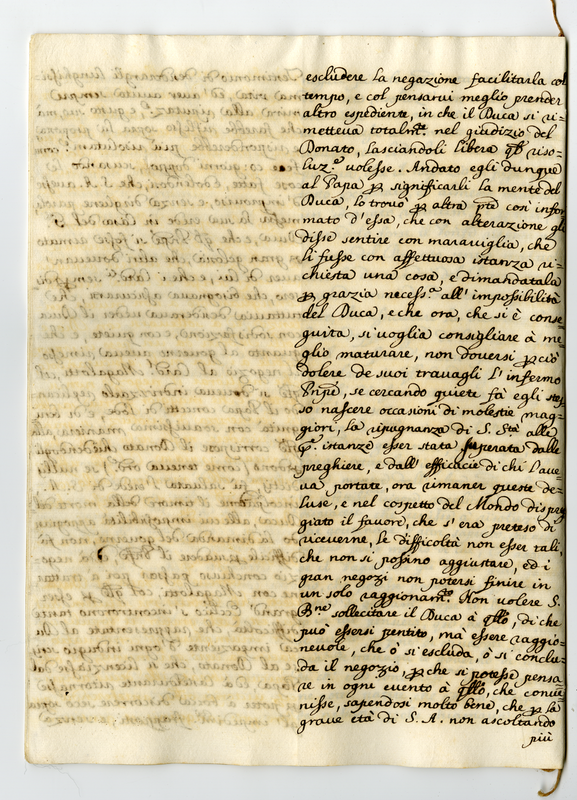 escludere la negazione facilitarla col
tempo, e col pensarvi meglio prender
altro espediente, in che il Duca si ri=
metteva totalm.te nel giudizio del
Donato, lasciandoli libera riso=
luz.e volesse. Andato egli dunque
al Papa ꝑ significarli la mente del
Duca, lo trovò ꝑ altra pte così infor
mato d'essa, che con alterazione gli
disse sentire con maraviglia, che
li fusse con affettuosa istanza ri=
chiesta una cosa, e dimandatala
ꝑ grazia necess.a all'impossibilità
del Duca, e che ora, che si è conse
guita, si voglia consigliare à me
glio maturare, non doversi ꝑciò
dolere de suoi travagli l'infermo
Pnpe, se cercando quiete fà egli stes
so nascere occasioni di molestie mag=
giori, la ripugnanza di S. Stà alle
istanze esser stata superata dalle
preghiere, e dall'efficacie di chi l'ave=
va portate, ora rimaner queste de=
luse, e nel cospetto del Mondo dispreg
giato il favore, che s'era preteso di
riceverne, le difficoltà non esser tali,
che non si possino aggiustare, ed i
gran negozi non potersi finire in
un solo raggionam.to Non volere S.
Bne sollecitare il Duca à qllo, di che
può essersi pentito, mà essere raggio=
nevole, che ò si escluda, ò si conclu=
da il negozio, ꝑche si potesse pensa
re in ogni evento à qllo, che conve
nisse, sapendosi molto bene, che ꝑ la
grave età di S. A. non ascoltando
più